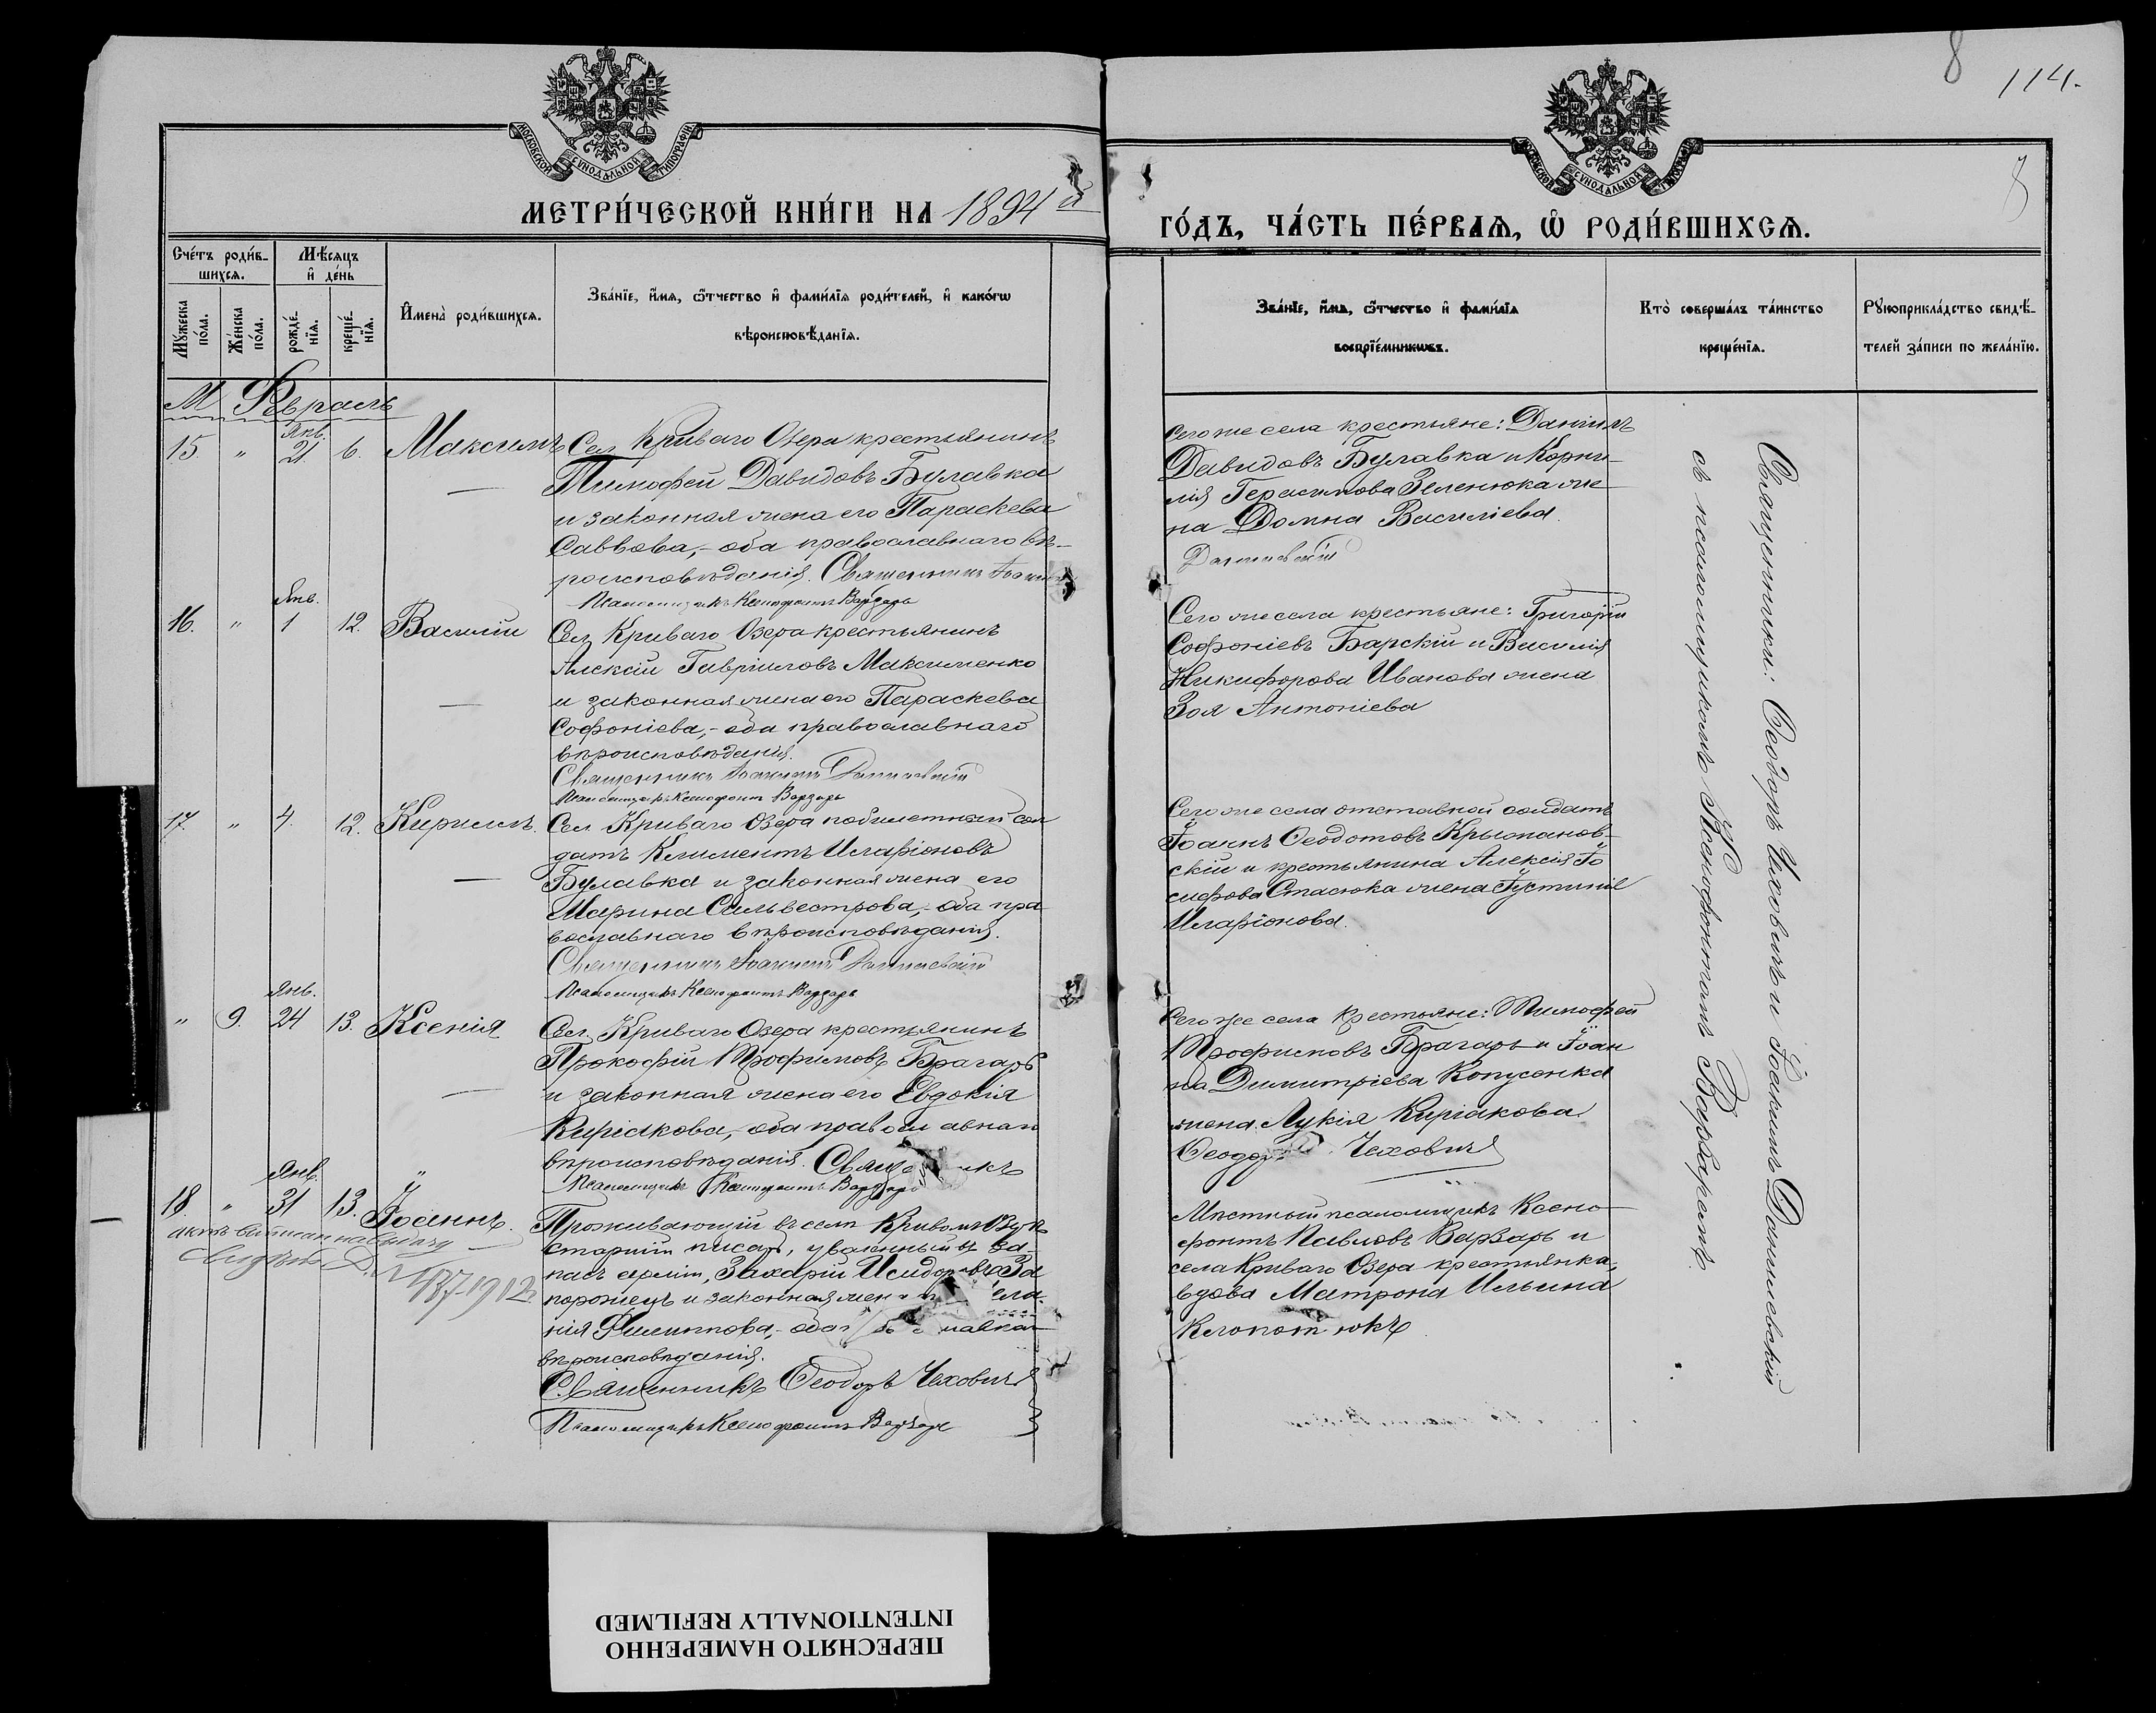 8 114.
8
МОСКОВСКОЙ СУНОДАЛЬНОЙ ТИПОГРАФІИ
МОСКОВСКОЙ СУНОДАЛЬНОЙ ТИПОГРАФІИ
МЕТРИ́ЧЕСКОЙ КНИ́ГИ НА 1894 й
ГО́ДЪ, ЧА́СТЬ ПЕ́РВАѦ, Ѡ҆ РОДИ́ВШИХСѦ.
Сче́тъ роди́в-
шихсѧ.
Мѣ́сѧцъ
и҆ де́нь
Мꙋжеска
по́ла.
Же́нска
по́ла.
рожде́-
нїѧ.
креще́-
нїѧ.
И҆мена̀ роди́вшихсѧ.
Зва́нїе, и҆́мѧ, ѻ҆́тчество и҆ фами́лїѧ роди́телей, и҆ како́гѡ
вѣроисповѣ́данїѧ.
Зва́нїе, и҆́мѧ, ѻ҆́тчество и҆ фами́лїѧ
воспрїе́мникѡвъ.
Кто̀ соверша́лъ та́инство
креще́нїѧ.
Рꙋкоприкла́дство свидѣ́-
телей за́писи по жела́нїю.
М Февраль
15. " Янв. 21 6. Максимъ
Сел. Криваго Озера крестьянинъ
Тимофей Давидовъ Булавка
и законная жена его Параскева
Саввова,- оба православнаго вѣ-
роисповѣданія. Священникъ Іоакимъ
Псаломщикъ Ксенофонтъ Варзарь
Сего же села крестьяне: Даніилъ
Давидовъ Булавка и Корни-
лія Герасимова Зеленюка же-
на Домна Василіева.
Даниловскій
16. " Янв. 1 12. Василій
Сел. Криваго Озера крестьянинъ
Алексій Гавріиловъ Максименко
и законная жена его Параскева
Софоніева,- оба православнаго
вѣроисповѣданія.
Священникъ Іоакимъ Даниловскій
Псаломщикъ Ксенофонтъ Варзарь
Сего же села крестьяне: Григорій
Софоніевъ Барскій и Василія
Никифорова Иванова жена
Зоя Антоніева
17. " 4. 12. Кириллъ.
Сел. Криваго Озера побилетный сол
датъ Климентъ Иларіоновъ
Булавка и законная жена его
Марина Сильвестрова,- оба пра
вославнаго вѣроисповѣданія.
Священникъ Іоакимъ Даниловскій
Псаломщикъ Ксенофонтъ Варзарь
Сего же села отставной солдатъ
Іоаннъ Ѳеодотовъ Крыжанов-
скій и крестьянина Алексія Іо
сифова Стасюка жена Іустинія
Иларіонова.
" 9. Янв. 24 13. Ксенія
Сел. Криваго Озера крестьянинъ
Прокофій Трофимовъ Брагарь
и законная жена его Евдокія
Киріакова,- оба православнаго
вѣроисповѣданія. Священникъ
Псаломщикъ Ксенофонтъ Варзарь
Сего же села крестьяне: Тимофей
Трофимовъ Брагарь и Іоан
на Димитріева
жена Лукія Киріакова
Ѳеодоръ Чеховичъ
18. " Янв. 31 13. Іоаннъ.
актъ выписан на выдачу
1912
Проживающій въ селѣ Кривомъ
старшій писарь, уволенный въ за-
пасъ арміи, Захарій Исидоровъ За
порожецъ и законная жена
нія Филиппова,- оба
вѣроисповѣданія.
Священникъ Ѳеодоръ Чеховичъ
Псаломщикъ Ксенофонтъ Варзарь
Мѣстный псаломщикъ Ксено-
фонтъ Павловъ Варзарь и
села Криваго Озера крестьянка,
вдова Матрона Ильина
Священники: Ѳеодоръ Чеховичъ и Іоакимъ Даниловскій
съ псаломщикомъ Ксенофонтомъ Варзаремъ.
ПЕРЕСНЯТО НАМЕРЕННО
INTENTIONALLY REFILMED